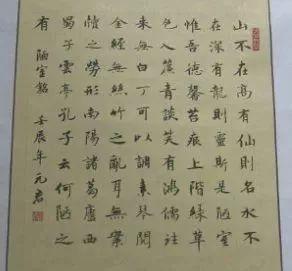 山不在高有仙則名水不
在深有龍則靈斯是陋室
惟吾德馨苔痕上階綠草
色入簾青談笑有鴻儒往
来無白丁可以調素琴閱
金經無絲竹之亂耳無案
牘之勞形南陽諸葛廬西
蜀子雲亭孔子云何陋之
有 陋室銘 壬辰年元君